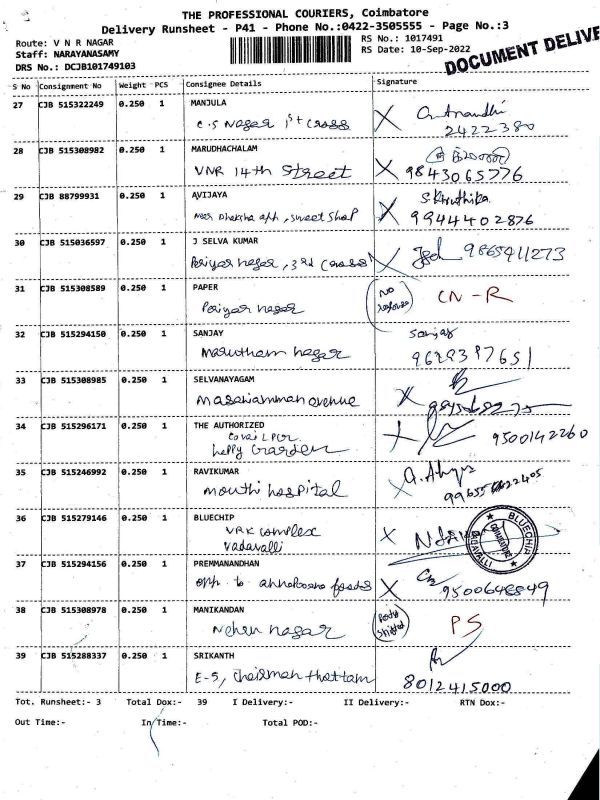 THE PROFESSIONAL COURIERS, Coimbatore
Delivery Runsheet - P41 - Phone No.:0422-3505555 - Page No.:3
Route: V N R NAGAR
RS No.: 1017491
Staff: NARAYANASAMY
RS Date: 10-Sep-2022
DRS No.: DCJB101749103
DOCUMENT DELIVE
S No Consignment No Weight PCS Consignee Details Signature
27 CJB 515322249 0.250 1 MANJULA
C.S Nagar 1st Cross
G. Anandhi
2422380
28 CJB 515308982 0.250 1 MARUDHACHALAM
VNR 14th Street
9843065776
29 CJB 88799931 0.250 1 AVIJAYA
Sweet Shop
S. Kiruthika
9944402876
30 CJB 515036597 0.250 1 J SELVA KUMAR
Periyar nagar, 3rd Cross
9865411273
31 CJB 515308589 0.250 1 PAPER
Periyar nagar
No response
CN-R
32 CJB 515294150 0.250 1 SANJAY
Marutham nagar
Sanjay
33 CJB 515308985 0.250 1 SELVANAYAGAM
Masaniamman avenue
34 CJB 515296171 0.250 1 THE AUTHORIZED
Happy Garden
9500142260
35 CJB 515246992 0.250 1 RAVIKUMAR
Mouthi hospital
36 CJB 515279146 0.250 1 BLUECHIP
VRK Complex
Vadavalli
BLUECHIP
COIMBATORE
VADAVALLI
37 CJB 515294156 0.250 1 PREMMANANDHAN
opp. to annapoorna foods
9500648849
38 CJB 515308978 0.250 1 MANIKANDAN
Nehru nagar
Party Shifted
PS
39 CJB 515288337 0.250 1 SRIKANTH
E-5, Chairman thottam
8012415000
Tot. Runsheet:- 3 Total Dox:- 39 I Delivery:- II Delivery:- RTN Dox:-
Out Time:- In Time:- Total POD:-